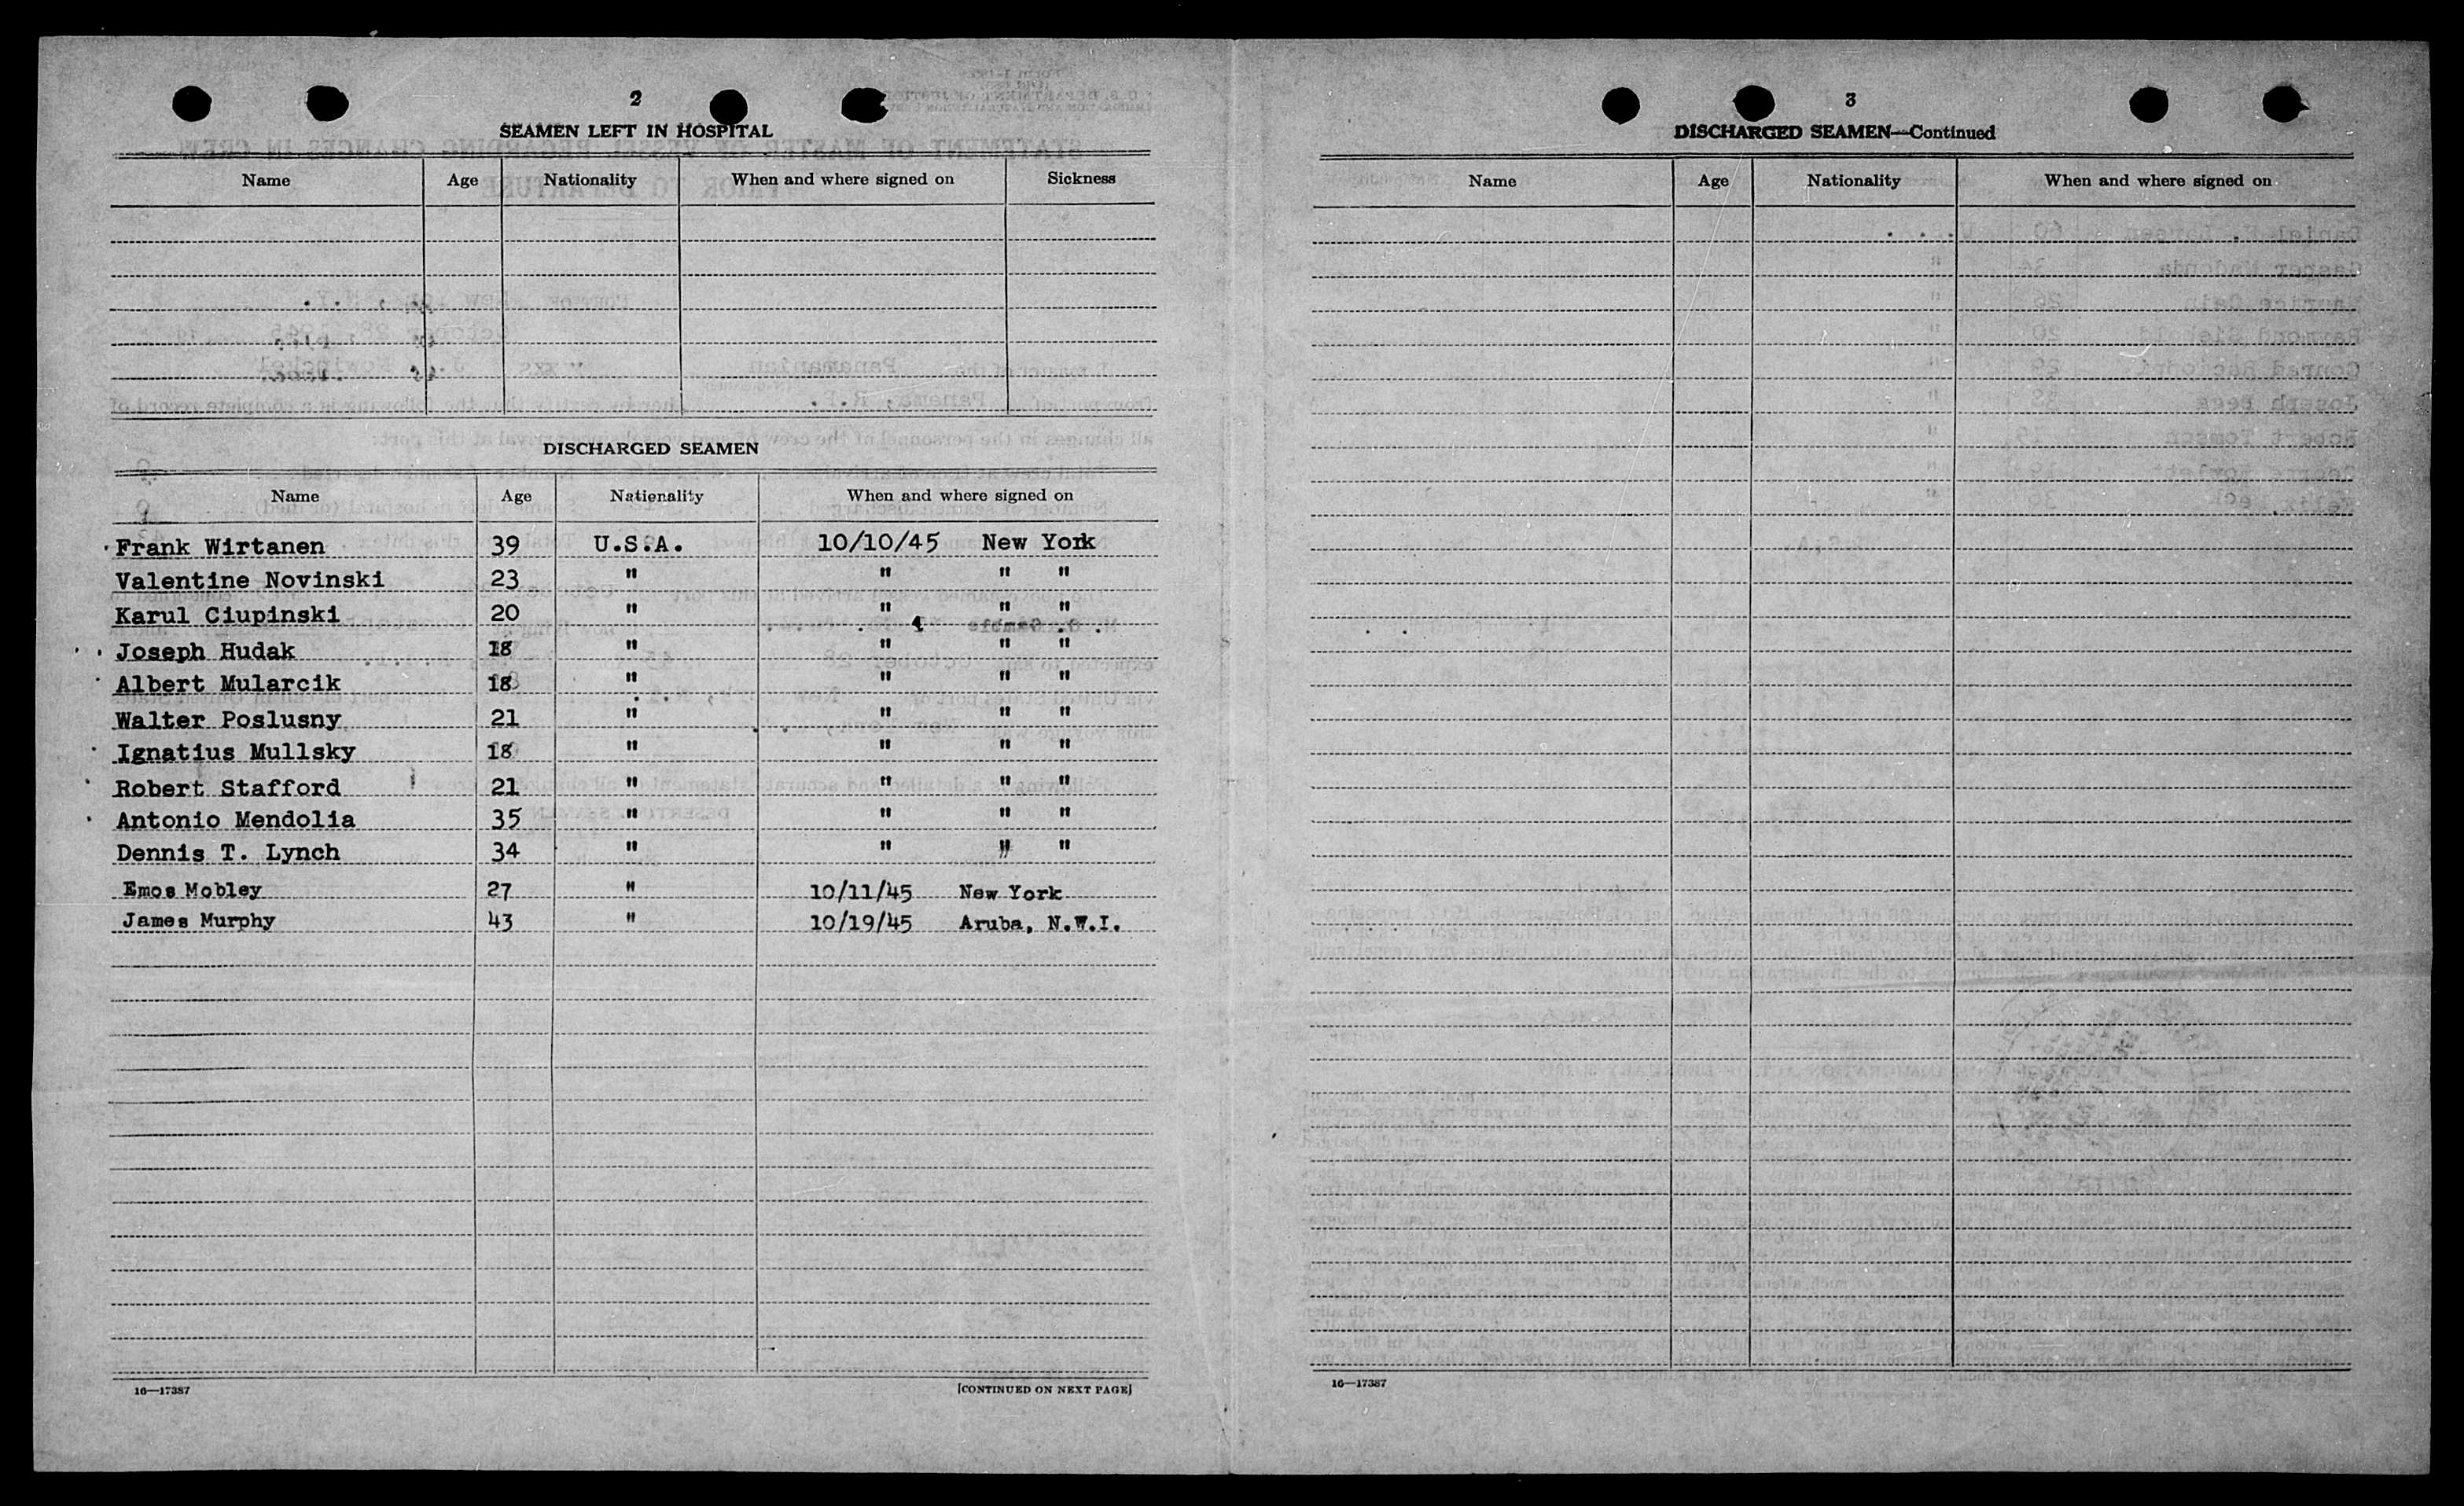 2
SEAMEN LEFT IN HOSPITAL
Name Age Nationality When and where signed on Sickness
DISCHARGED SEAMEN
Name Age Nationality When and where signed on
Frank Wirtanen 39 U.S.A. 10/10/45 New York
Valentine Novinski 23 " " " "
Karul Ciupinski 20 " " " "
Joseph Hudak 18 " " " "
Albert Mularcik 18 " " " "
Walter Poslusny 21 " " " "
Ignatius Mullsky 18 " " " "
Robert Stafford 21 " " " "
Antonio Mendolia 35 " " " "
Dennis T. Lynch 34 " " " "
Emos Mobley 27 " 10/11/45 New York
James Murphy 43 " 10/19/45 Aruba, N.W.I.
16—17387 [CONTINUED ON NEXT PAGE]
3
DISCHARGED SEAMEN—Continued
Name Age Nationality When and where signed on
16—17387